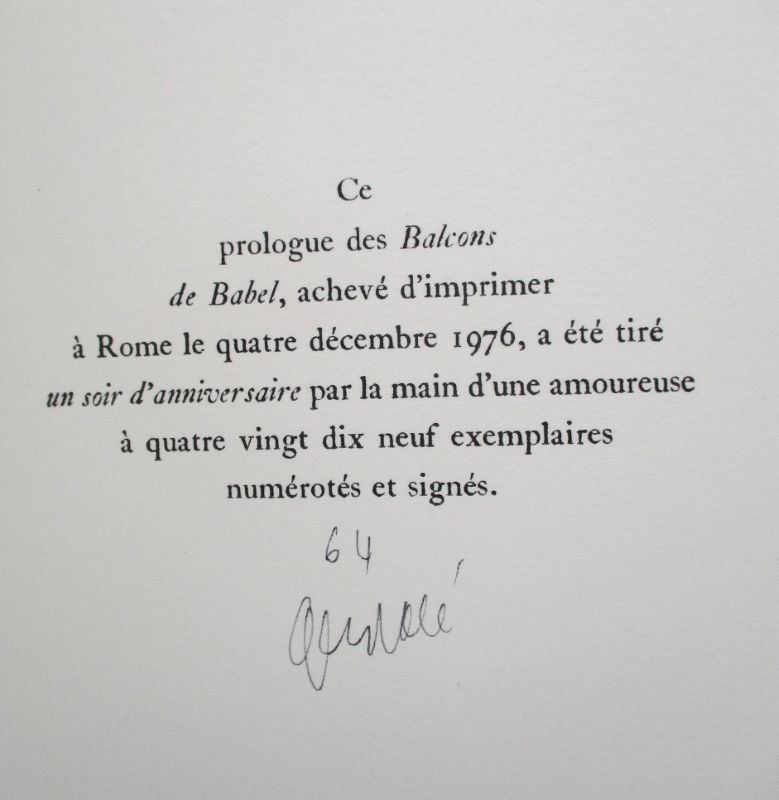 Ce
prologue des Balcons
de Babel, achevé d'imprimer
à Rome le quatre décembre 1976, a été tiré
un soir d'anniversaire par la main d'une amoureuse
à quatre vingt dix neuf exemplaires
numérotés et signés.
64